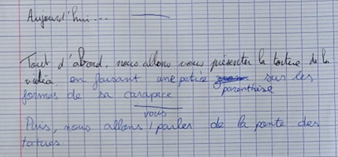 Aujourd'hui...
Tout d'abord, nous allons vous présenter la tortue de la
vidéo en faisant une petite sur les
parenthèse
formes de sa carapace
vous
Puis, nous allons parler de la ponte des
tortues.